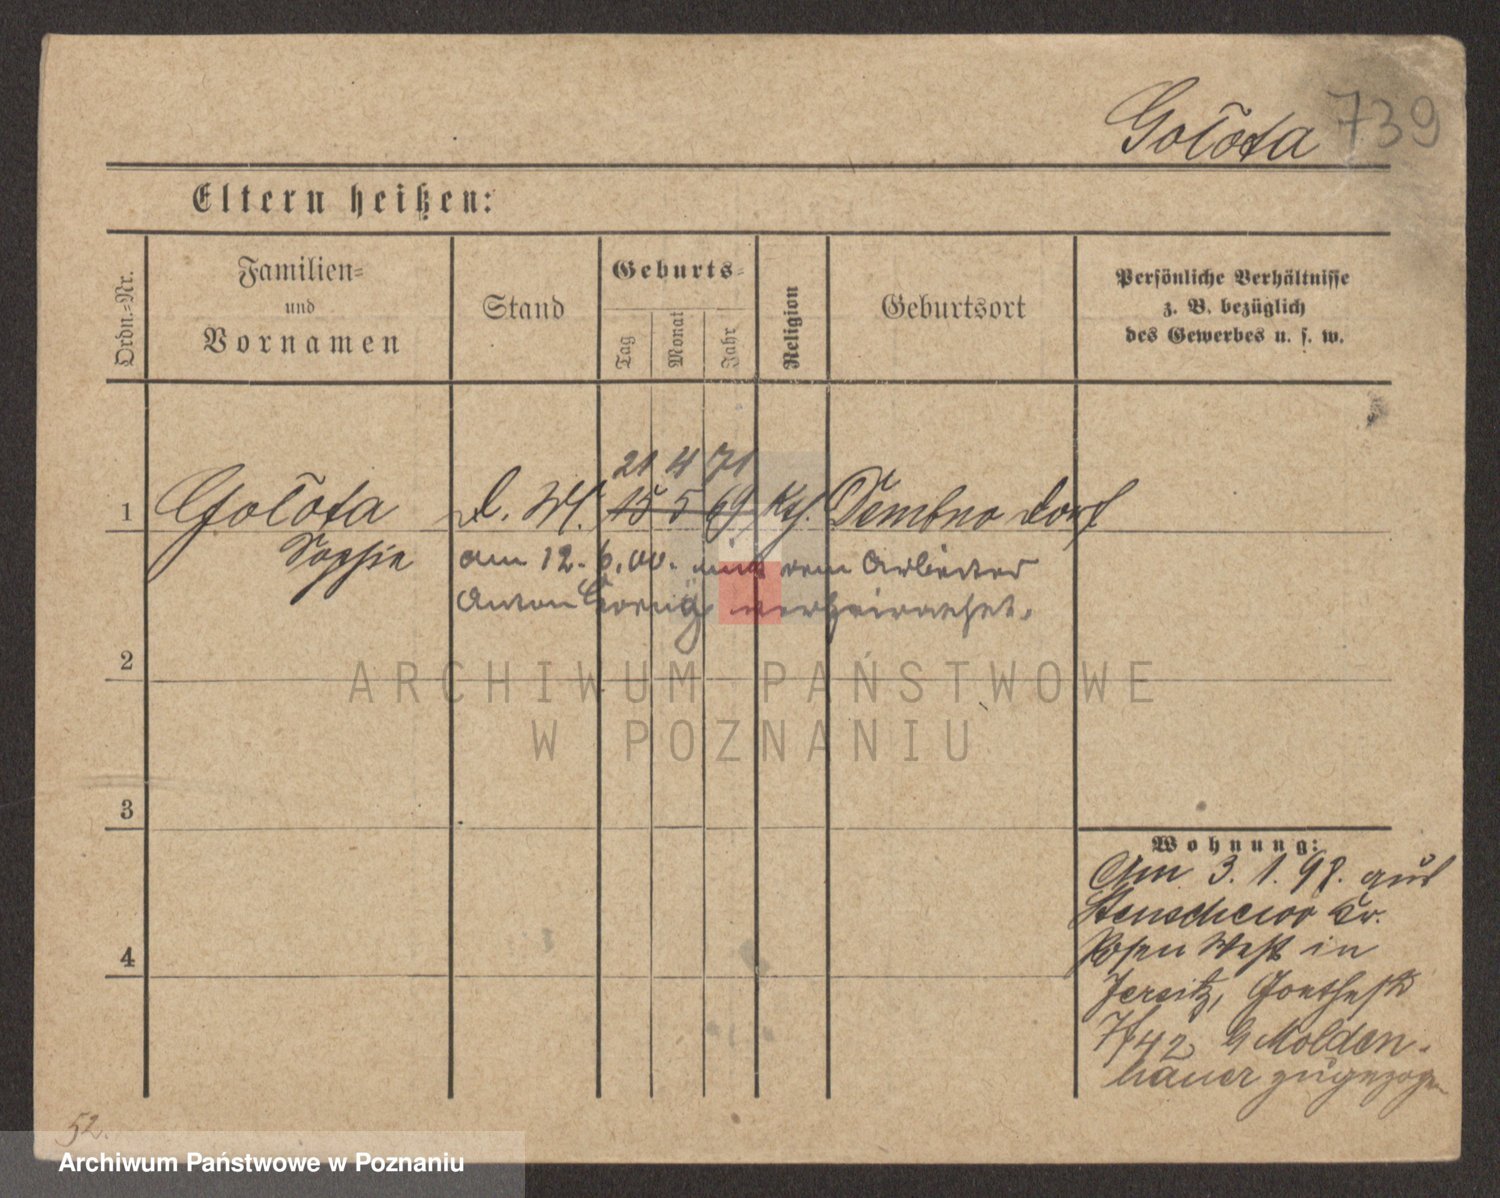 Gołota 739
Eltern heißen:
Ordn.-Nr.
Familien-
und
Vornamen
Stand
Geburts-
Tag
Monat
Jahr
Religion
Geburtsort
Persönliche Verhältnisse
z. B. bezüglich
des Gewerbes u. s. w.
21 4 71
1 Gołota d. M. 15 5 69 kth. Dembno Dorf
Sophie am 12. 6. 00. mit dem Arbeiter
Anton verheirathet.
2
ARCHIWUM PAŃSTWOWE
W POZNANIU
3
Wohnung:
Am 3. 1. 98. aus
Stenschewo Kr.
4
Posen West in
Jersitz, Goethestr
7/42 b Molden-
hauer zugezogen
52.
Archiwum Państwowe w Poznaniu